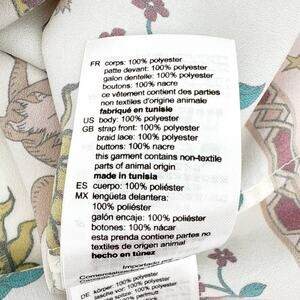 FR corps: 100% polyester
patte devant: 100% polyester
galon dentelle: 100% polyester
boutons: 100% nacre
ce vêtement contient des parties
non textiles d'origine animale
fabriqué en tunisie
US body: 100% polyester
GB strap front: 100% polyester
braid lace: 100% polyester
buttons: 100% nacre
this garment contains non-textile
parts of animal origin
made in tunisia
ES cuerpo: 100% poliéster
MX lengüeta delantera:
100% poliéster
galón encaje: 100% poliéster
botones: 100% nácar
esta prenda contiene partes no
textiles de origen animal
hecho en túnez
Importado por
DE körper: 100% polyester
100% polyester
spitze: 100% polyester